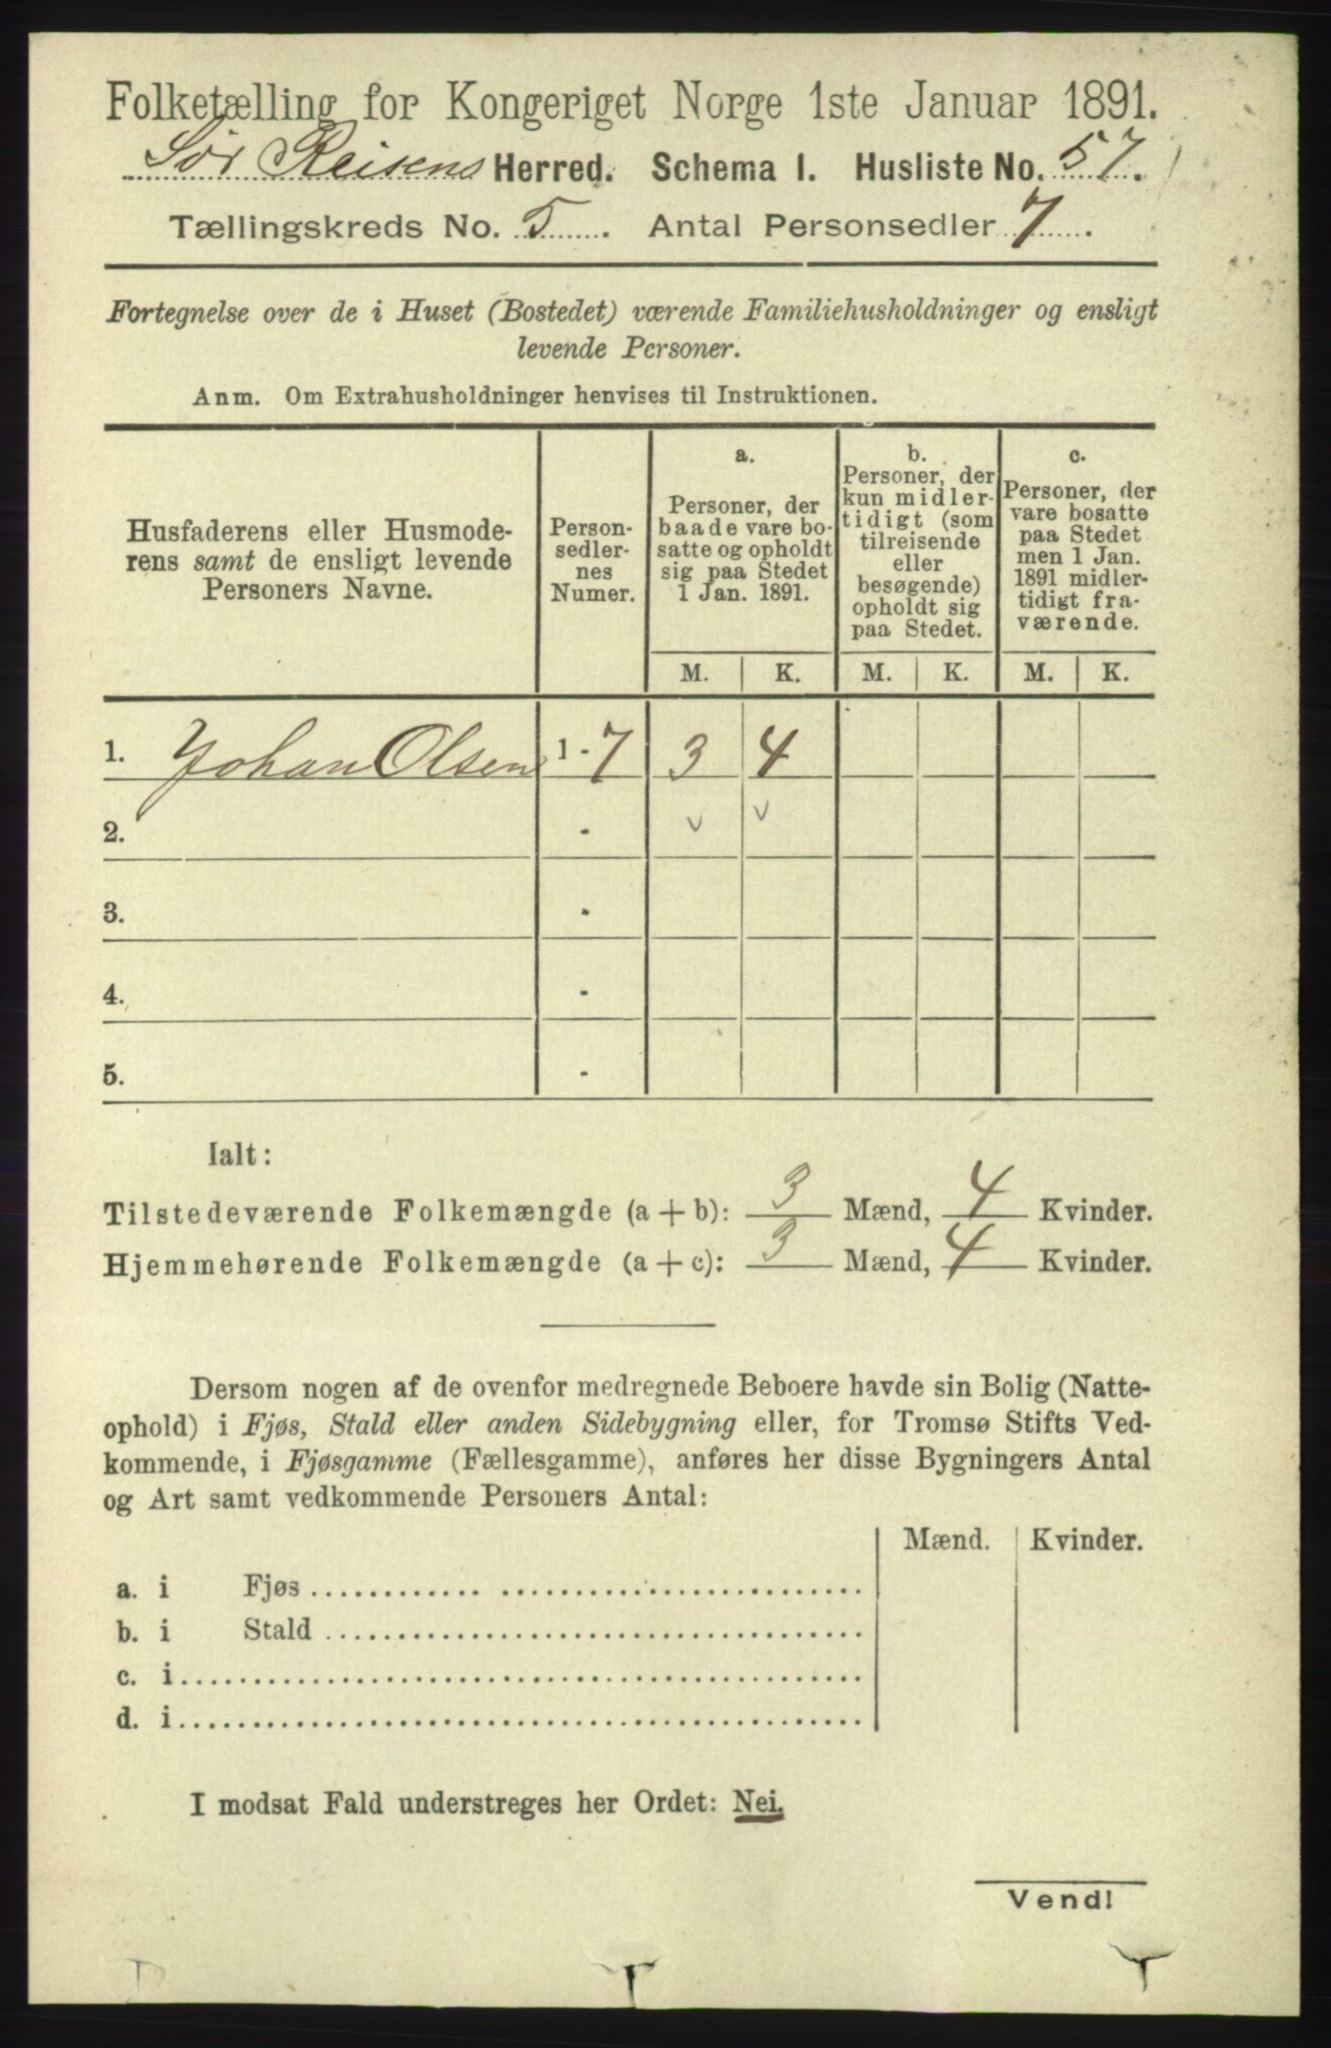 Folketælling for Kongeriget Norge 1ste Januar 1891.
Sør Reisens Herred. Schema I. Husliste No. 57.
Tællingskreds No. 5. Antal Personsedler 7.
Fortegnelse over de i Huset (Bostedet) værende Familiehusholdninger og ensligt
levende Personer.
Anm. Om Extrahusholdninger henvises til Instruktionen.
Husfaderens eller Husmode-
rens samt de ensligt levende
Personers Navne.
Person-
sedler-
nes
Numer.
a.
Personer, der
baade vare bo-
satte og opholdt
sig paa Stedet
1 Jan. 1891.
b.
Personer, der
kun midler-
tidigt (som
tilreisende
eller
besøgende)
opholdt sig
paa Stedet.
c.
Personer, der
vare bosatte
paa Stedet
men 1 Jan.
1891 midler-
tidigt fra-
værende.
M. K. M. K. M. K.
1. Johan Olsen 1 - 7 3 4
2. - v v
3. -
4. -
5. -
Ialt:
Tilstedeværende Folkemængde (a + b): 3 Mænd, 4 Kvinder.
Hjemmehørende Folkemængde (a + c): 3 Mænd, 4 Kvinder.
Dersom nogen af de ovenfor medregnede Beboere havde sin Bolig (Natte-
ophold) i Fjøs, Stald eller anden Sidebygning eller, for Tromsø Stifts Ved-
kommende, i Fjøsgamme (Fællesgamme), anføres her disse Bygningers Antal
og Art samt vedkommende Personers Antal:
Mænd. Kvinder.
a. i Fjøs
b. i Stald
c. i
d. i
I modsat Fald understreges her Ordet: Nei.
Vend!